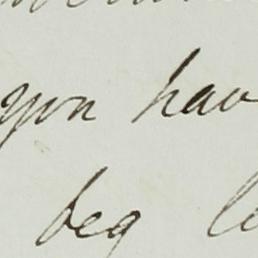 you hav
beg le